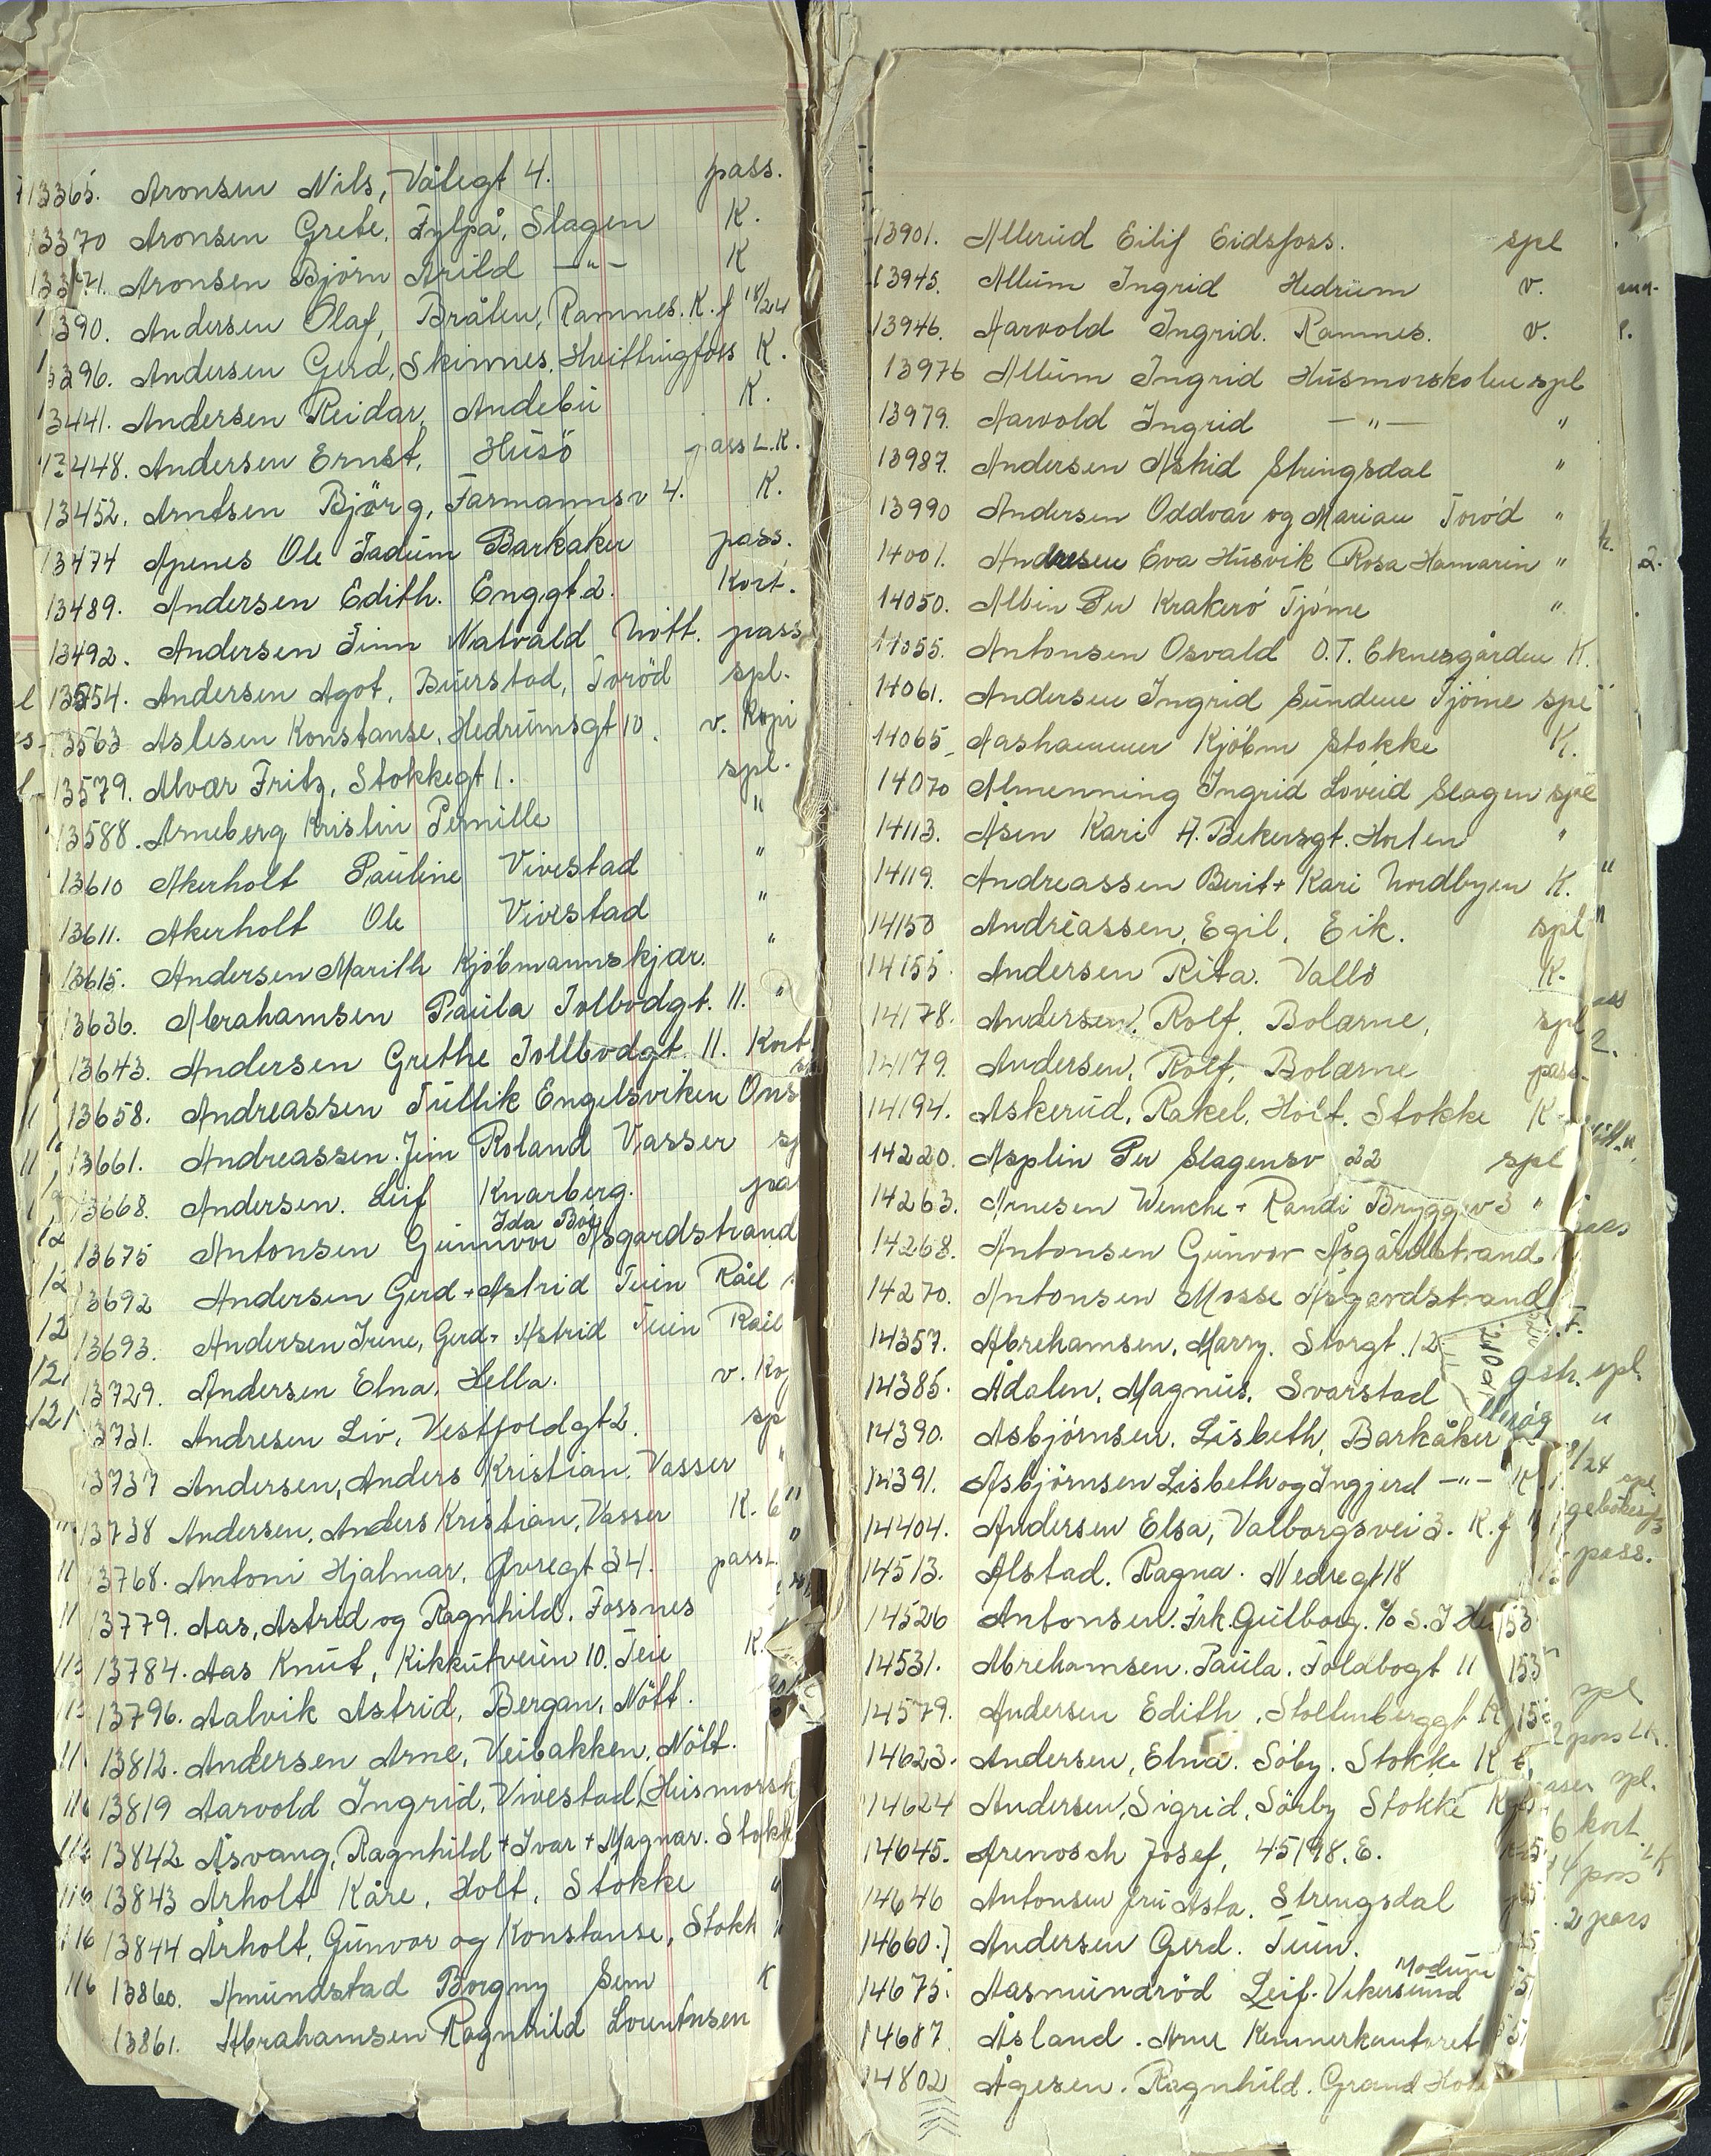 13365. Aronsen Nils, Vålegt 4. pass.
13370 Aronsen Grete, Fylpå, Slagen K.
13371. Aronsen Bjørn Arild —"— K
1390. Andersen Olaf, Bråten, Ramnes. K.f 18/24
13396. Andersen Gerd, Skinnes, Hvittingfoss K.
13441. Andersen Reidar, Andebu K.
13448. Andersen Ernst, Husö pass L.K.
13452. Arntsen Björg, Farmannsv 4. K.
13474 Apenes Ole Fadum Barkaker pass.
13489. Andersen Edith. Enggt 2. Kort.
13492. Andersen Finn Natvald Nött. pass
13554. Andersen Agot, Buerstad, Toröd spl.
13563 Aslesen Konstanse, Hedrumsgt 10. v. Kopi
13579. Alvær Fritz, Stokkegt 1. spl.
13588. Arneberg Kristin Pernille "
13610 Akerholt Pauline Vivestad "
13611. Akerholt Ole Vivestad "
13615. Andersen Marith Kjöbmannskjær. "
13636. Abrahamsen Paula Tolbodgt. 11. "
13643. Andersen Grethe Tollbodgt. 11. Kort
13658. Andreassen Tullik Engelsviken Ons
13661. Andreassen. Jim Roland Vasser sp
13668. Andersen. Leif Knarberg. pa
Ida Boy
13675 Antonsen Gunnvor Åsgardstrand
13692 Andersen Gerd + Astrid Tuin Råel
13693. Andersen Irene, Gerd + Astrid Tuin Råel
13729. Andersen Elna, Hella. v. Ko
13731. Andresen Liv, Vestfoldgt 2. sp
13737 Andersen, Anders Kristian, Vasser "
13738 Andersen, Anders Kristian, Vasser K. 6
13768. Antoni Hjalmar, Øvregt 34. pass L.
13779. Aas, Astrid og Ragnhild, Fossnes
13784. Aas Knut, Kikkutveien 10. Teie K.
13796. Aalvik Astrid, Bergan, Nött.
13812. Andersen Arne, Veibakken, Nött.
13819 Aarvold Ingrid, Vivestad, (Husmorsk
13842 Åsvang, Ragnhild + Ivar + Magnar. Stokk
13843 Årholt Kåre, Holt, Stokke "
13844 Årholt, Gunvor og Konstanse, Stokk "
13860. Amundstad Borgny Sem K
13861. Abrahamsen Ragnhild Lorentnsen
13901. Allerud Eilif Eidsfoss. spl
13945. Allum Ingrid Hedrum v.
13946. Aarvold Ingrid. Ramnes. v.
13976 Allum Ingrid Husmorskolen spl
13979. Aarvold Ingrid —"— "
13987. Andersen Astrid Stringsdal "
13990 Andersen Oddvar og Marian Toröd "
14001. Andresen Eva Husvik Rosa Hamarin "
14050. Albin Per Krakerö Tjöme "
14055. Antonsen Osvald O.T. Eknesgården K.
14061. Andersen Ingrid Sundene Tjöme spl
14065 Aashammer Kjöbm Stokke K.
14070 Almenning Ingrid Löveid Slagen spl
14113. Åsen Kari A. Bekersgt. Horten "
14119. Andreassen Berit + Kari Nordbyen K.
14150 Andréassen, Egil, Eik. spl
14155. Andersen Rita. Vallö K.
14178. Andersen. Rolf. Bolærne, spl
14179. Andersen. Rolf, Bolærne pass.
14194. Askerud, Rakel, Holt. Stokke K.
14220. Asplin Per Slagensv 22 spl
14263. Arnesen Wenche + Randi Bryggev 3 "
14268. Antonsen Gunvor Åsgårdstrand.
14270. Antonsen Mosse Åsgardstrand
14357. Abrehamsen, Marry. Storgt. 12
14385. Ådalen, Magnus, Svarstad
14390. Asbjörnsen. Lisbeth, Barkåker
14391. Asbjörnsen Lisbeth og Ingjerd —"— K
14404. Andersen Elsa, Valborgsvei 3. K.f
14513. Alstad. Ragna. Nedregt 18
14526 Antonsen. Frk. Gulborg. c/o S. J
14531. Abrehamsen. Paula. Toldbogt 11
14579. Andersen Edith, Stoltenberggt K
14623. Andersen, Elna. Söby. Stokke K
14624 Andersen, Sigrid, Sörby Stokke K
14645. Arenosch Josef, 45198. E.
14646 Antonsen fru Asta. Strengsdal
14660.) Andersen Gerd. Tuin.
Modum
14675. Aasmundröd Leif. Vikersund
14687 Åsland. Arne Kemnerkontoret
14802 Ågesen. Ragnhild. Grand Hote